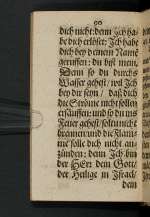 90
dich nicht: denn ich ha-
be dich erlöset: Ich habe
dich bey deinem Name
geruffen: du bist mein,
Denn so du durchs
Wasser gehest, wil Ich
bey dir seyn, daß dich
die Ströme nicht sollen
ersäuffen: und so du ins
Feuer gehest, solt u nicht
brennen und die Flam-
me solle dich nicht an-
zünden: denn Ich bin
der HErr dein Gott,
der Heilige in Israel,
dem